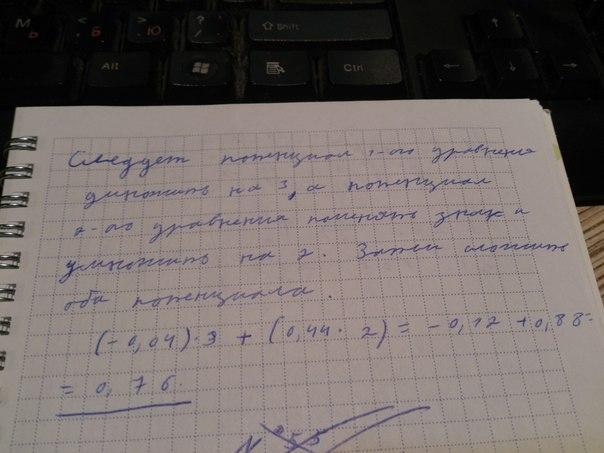 М Ь
< Б
> Ю
? /
Shift
Alt
Ctrl
Следует потенциал 1-ого уравнения
умножить на 3, а потенциал
2-ого уравнения поменять знак и
умножить на 2. Затем сложить
оба потенциала.
(-0,04)·3 + (0,44·2) = -0,12 + 0,88=
= 0,76